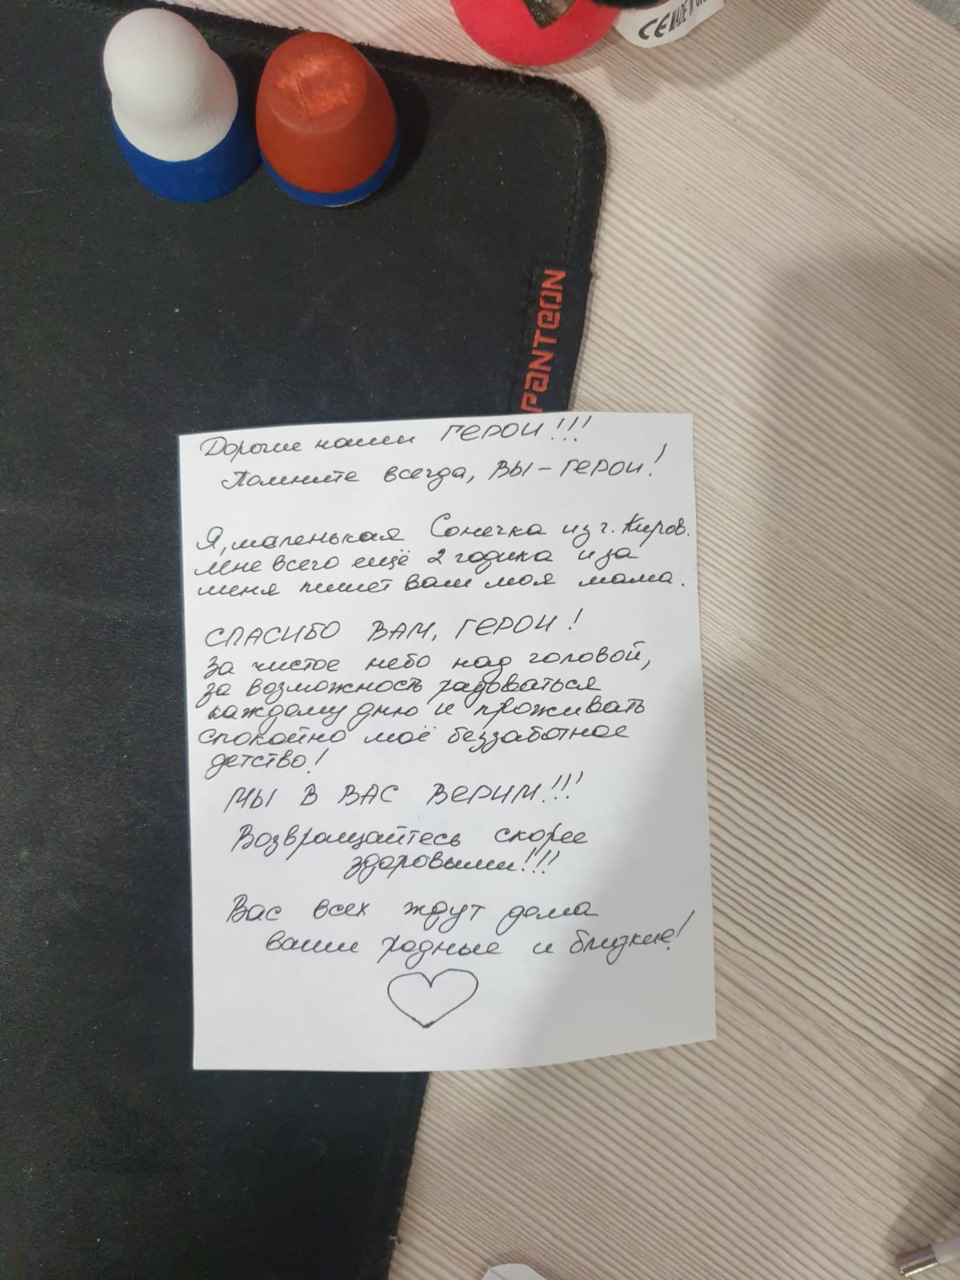 CE MADE IN
PANTEON
Дорогие наши ГЕРОИ!!!
Помните всегда, ВЫ – ГЕРОИ!
Я, маленькая Сонечка из г. Киров.
Мне всего ещё 2 годика и за
меня пишет вам моя мама.
СПАСИБО ВАМ, ГЕРОИ!
За чистое небо над головой,
за возможность радоваться
каждому дню и проживать
спокойно моё беззаботное
детство!
МЫ В ВАС ВЕРИМ!!!
Возвращайтесь скорее
здоровыми!!!
Вас всех ждут дома
ваши родные и близкие!